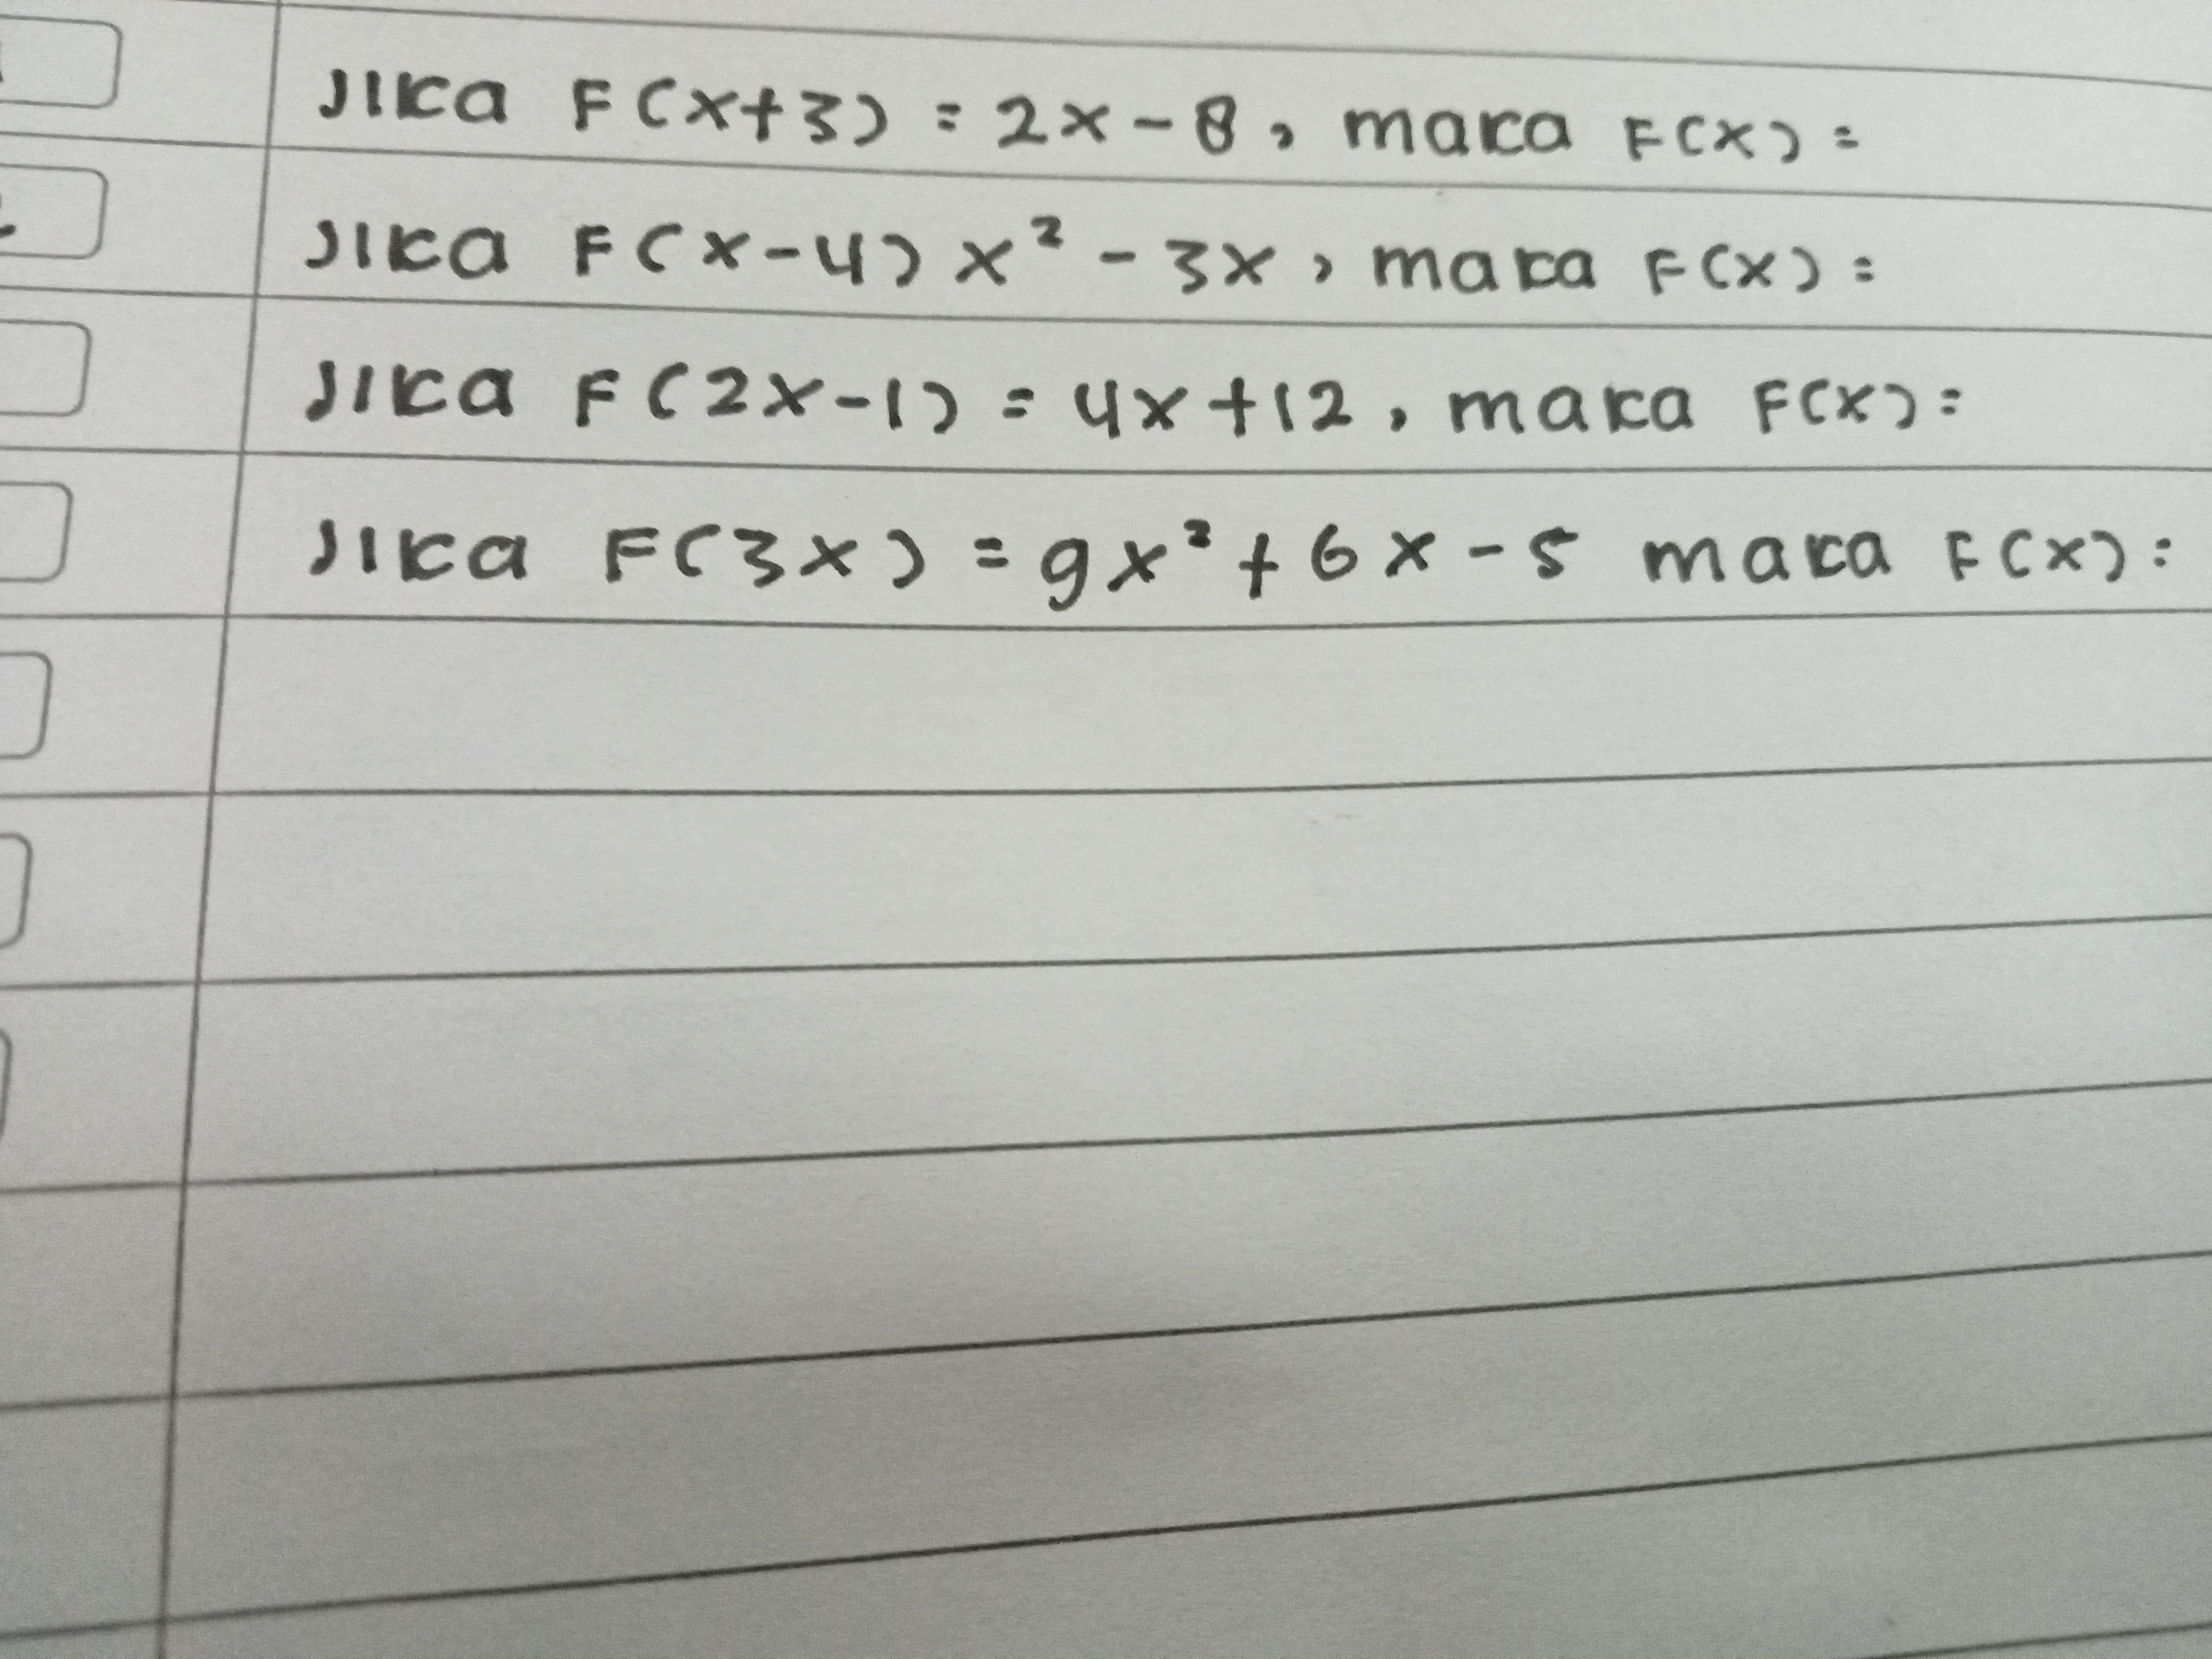 Jika F(x+3) = 2x-8, maka F(x) =
Jika F(x-4) x² - 3x, maka F(x) =
Jika F(2x-1) = 4x+12, maka F(x) =
Jika F(3x) = 9x² + 6x - 5 maka F(x) =